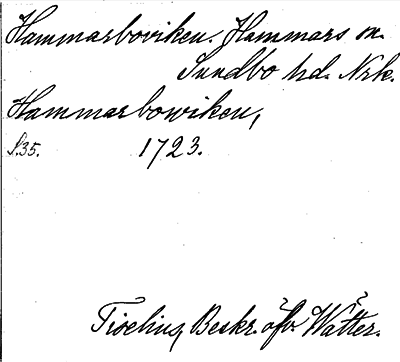 Hammarboviken. Hammars sn.
Sundbo hd. Nrk.
Hammarbowiken,
S. 35. 1723.
Tiselius, Beskr. öfv. Wätter.